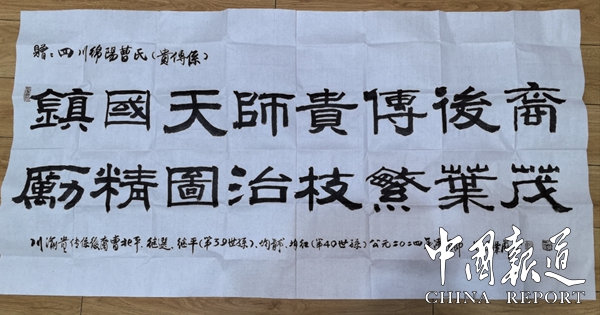 贈：四川綿陽曹氏（貴傳係）
鎮國天師貴傳後裔
勵精圖治枝繁葉茂
川渝贵传係後裔曹北平、继平（第39世孫）、（第40世孫）公元二0二四年
中國報道
CHINA REPORT